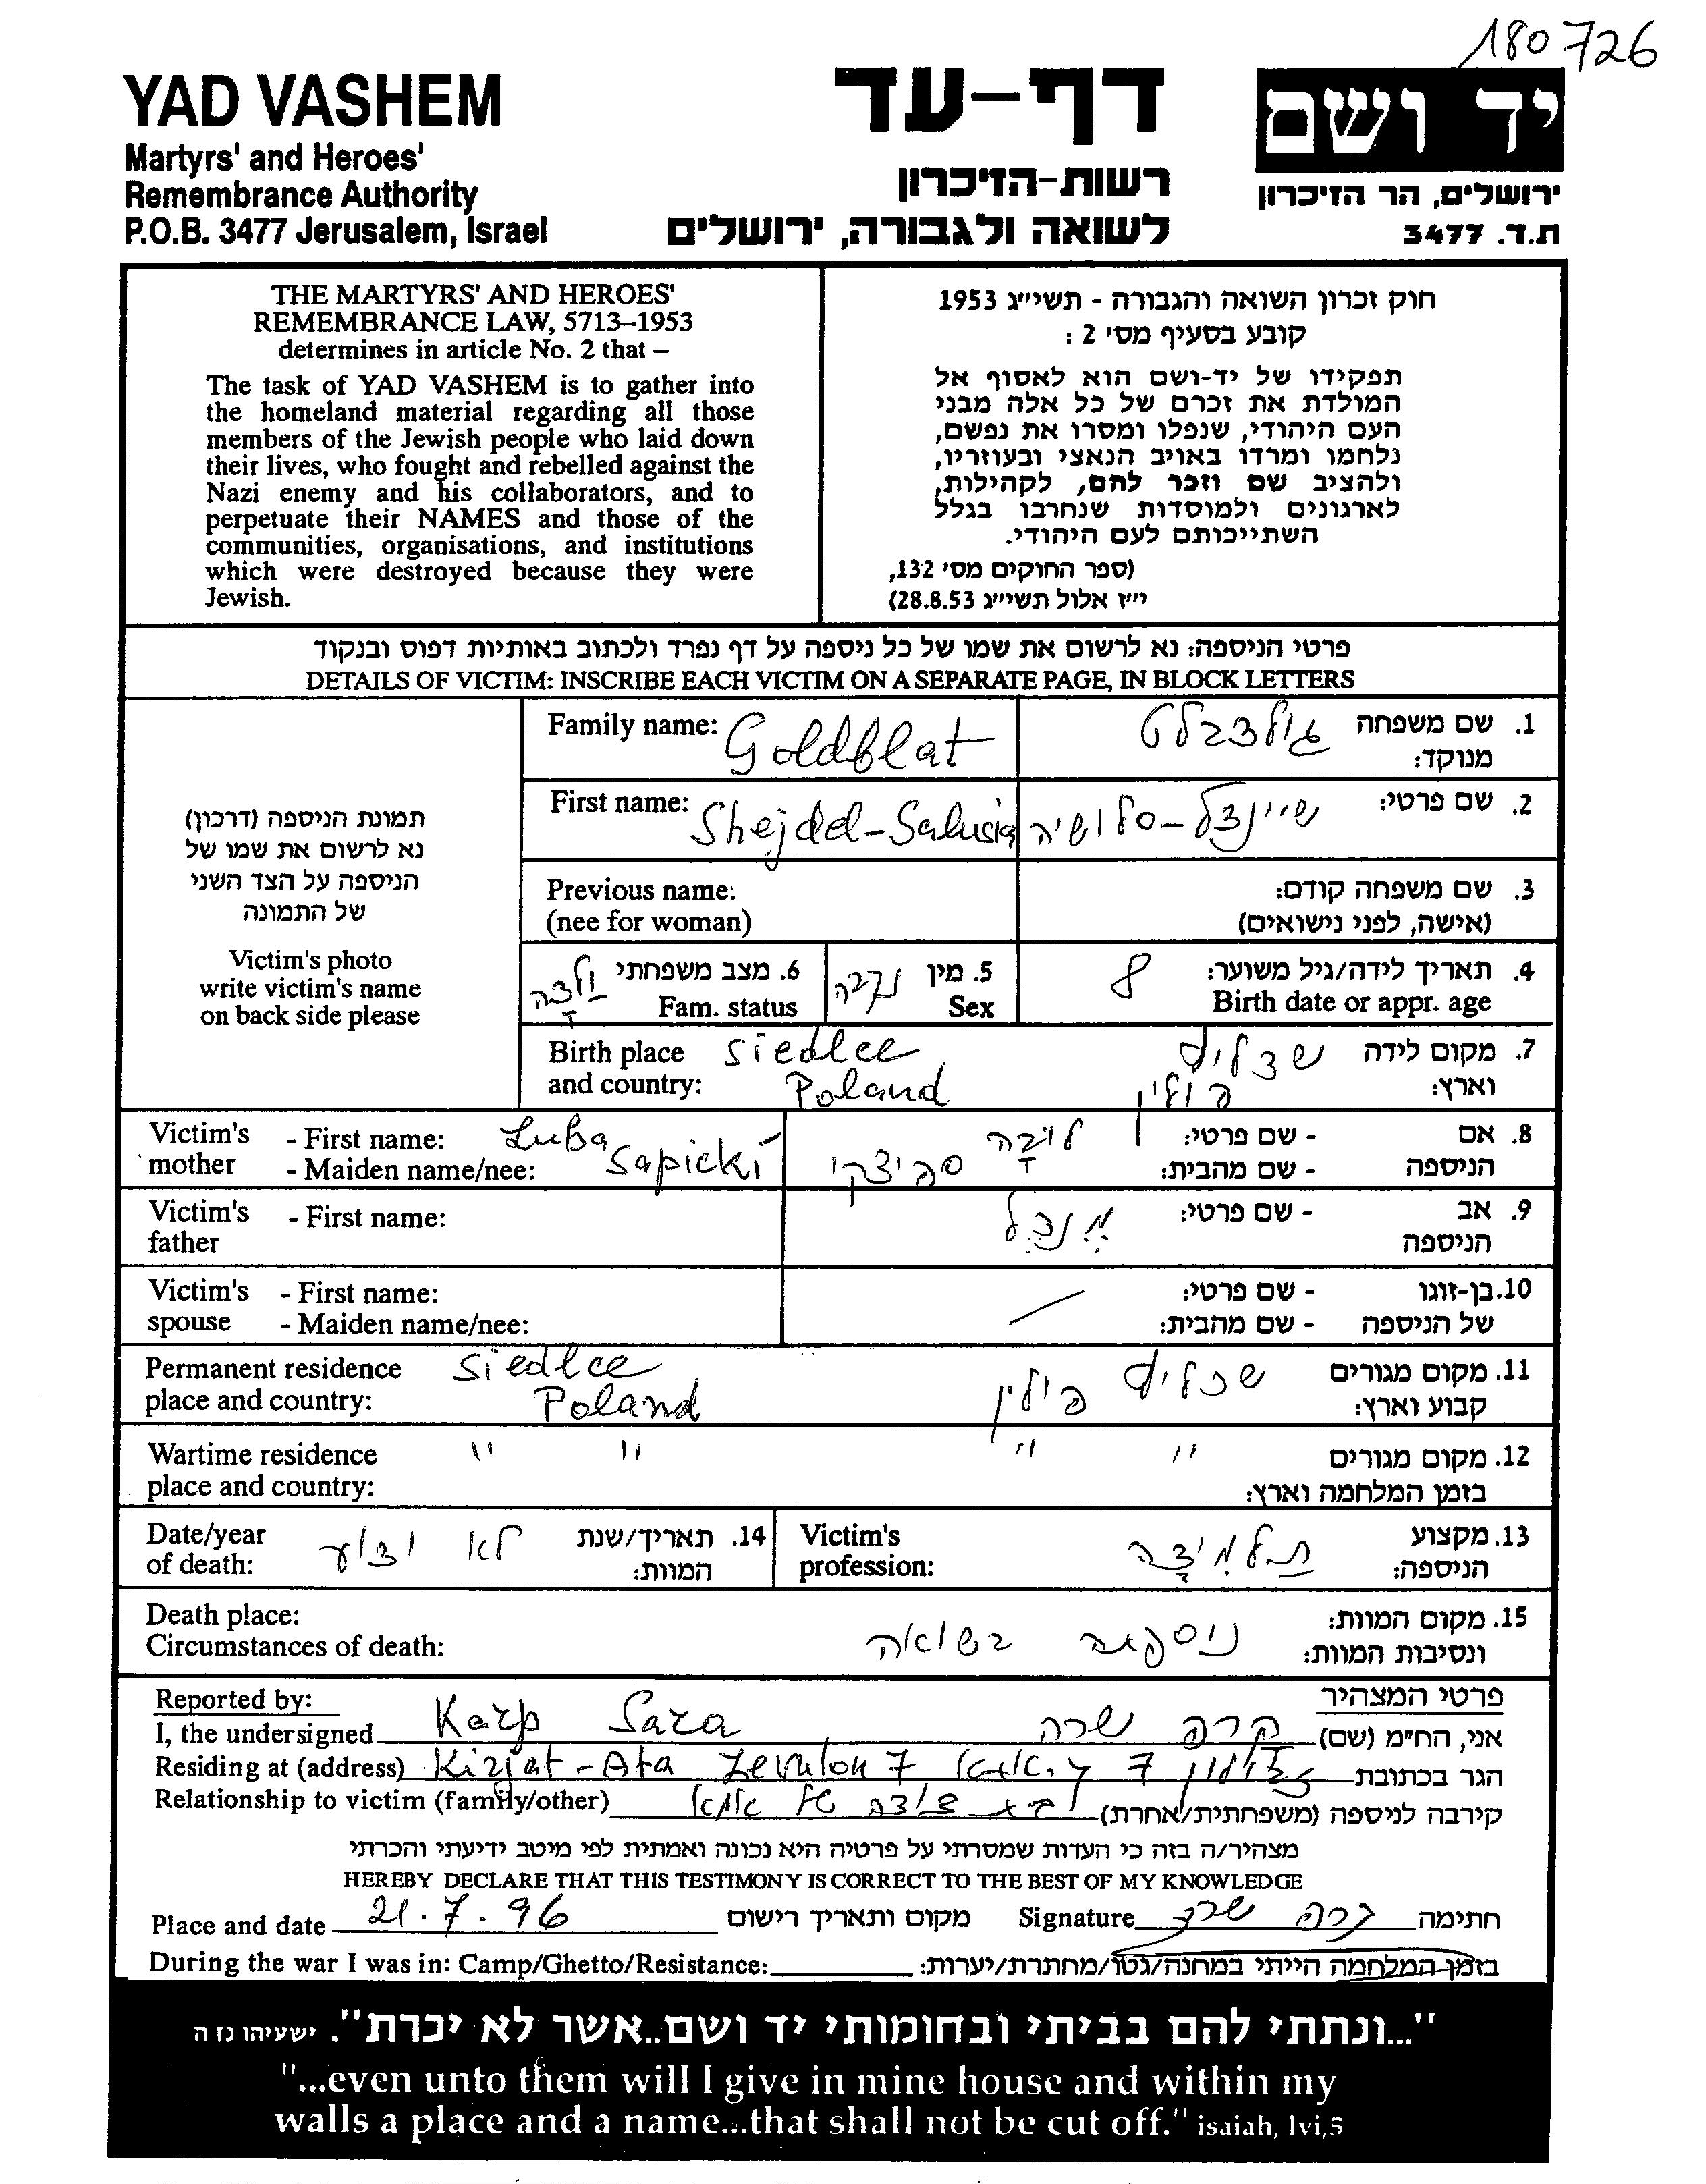 180726
YAD VASHEM
Martyrs' and Heroes'
Remembrance Authority
P.O.B. 3477 Jerusalem, Israel
דף-עד
רשות-הזיכרון
לשואה ולגבורה, ירושלים
יד ושם
ירושלים, הר הזיכרון
ת.ד. 3477
THE MARTYRS' AND HEROES'
REMEMBRANCE LAW, 5713–1953
determines in article No. 2 that –
The task of YAD VASHEM is to gather into
the homeland material regarding all those
members of the Jewish people who laid down
their lives, who fought and rebelled against the
Nazi enemy and his collaborators, and to
perpetuate their NAMES and those of the
communities, organisations, and institutions
which were destroyed because they were
Jewish.
חוק זכרון השואה והגבורה - תשי״ג 1953
קובע בסעיף מס׳ 2 :
תפקידו של יד-ושם הוא לאסוף אל
המולדת את זכרם של כל אלה מבני
העם היהודי, שנפלו ומסרו את נפשם,
נלחמו ומרדו באויב הנאצי ובעוזריו,
ולהציב שם וזכר להם, לקהילות,
לארגונים ולמוסדות שנחרבו בגלל
השתייכותם לעם היהודי.
(ספר החוקים מס׳ 132,
י״ז אלול תשי״ג 28.8.53)
פרטי הניספה: נא לרשום את שמו של כל ניספה על דף נפרד ולכתוב באותיות דפוס ובנקוד
DETAILS OF VICTIM: INSCRIBE EACH VICTIM ON A SEPARATE PAGE, IN BLOCK LETTERS
תמונת הניספה (דרכון)
נא לרשום את שמו של
הניספה על הצד השני
של התמונה
Victim's photo
write victim's name
on back side please
Family name: Goldblat
1. שם משפחה גולדבלט
מנוקד:
First name: Shejdel-Salusia
2. שם פרטי: שיינדל-סלושיה
Previous name:
(nee for woman)
3. שם משפחה קודם:
(אישה, לפני נישואים)
4. תאריך לידה/גיל משוער: 8
Birth date or appr. age
5. מין נקבה
Sex
6. מצב משפחתי ילדה
Fam. status
Birth place Siedlce
and country: Poland
7. מקום לידה שדליץ
וארץ: פולין
Victim's mother - First name: Luba
- Maiden name/nee: Sapicki
8. אם הניספה - שם פרטי: לובה
- שם מהבית: ספיצקי
Victim's father - First name:
9. אב הניספה - שם פרטי: מנדל
Victim's spouse - First name:
- Maiden name/nee:
10. בן-זוגו של הניספה - שם פרטי:
- שם מהבית:
Permanent residence Siedlce
place and country: Poland
11. מקום מגורים שדליץ
קבוע וארץ: פולין
Wartime residence " "
place and country:
12. מקום מגורים " "
בזמן המלחמה וארץ:
Date/year
of death:
14. תאריך/שנת לא ידוע
המוות:
Victim's
profession:
13. מקצוע תלמידה
הניספה:
Death place:
Circumstances of death:
15. מקום המוות: ניספתה בשואה
ונסיבות המוות:
Reported by:
פרטי המצהיר
I, the undersigned Karp Sara
אני, הח״מ (שם) קרפ שרה
Residing at (address) Kirjat-Ata Zevulon 7
הגר בכתובת זבולון 7 ק. אתא
Relationship to victim (family/other)
קירבה לניספה (משפחתית/אחרת)
מצהיר/ה בזה כי העדות שמסרתי על פרטיה היא נכונה ואמתית לפי מיטב ידיעתי והכרתי
HEREBY DECLARE THAT THIS TESTIMONY IS CORRECT TO THE BEST OF MY KNOWLEDGE
Place and date 21.7.96 מקום ותאריך רישום
Signature קרפ שרה חתימה
During the war I was in: Camp/Ghetto/Resistance:
בזמן המלחמה הייתי במחנה/גטו/מחתרת/יערות:
"...ונתתי להם בביתי ובחומותי יד ושם..אשר לא יכרת". ישעיהו נז ה
"...even unto them will I give in mine house and within my
walls a place and a name...that shall not be cut off." isaiah, lvi,5